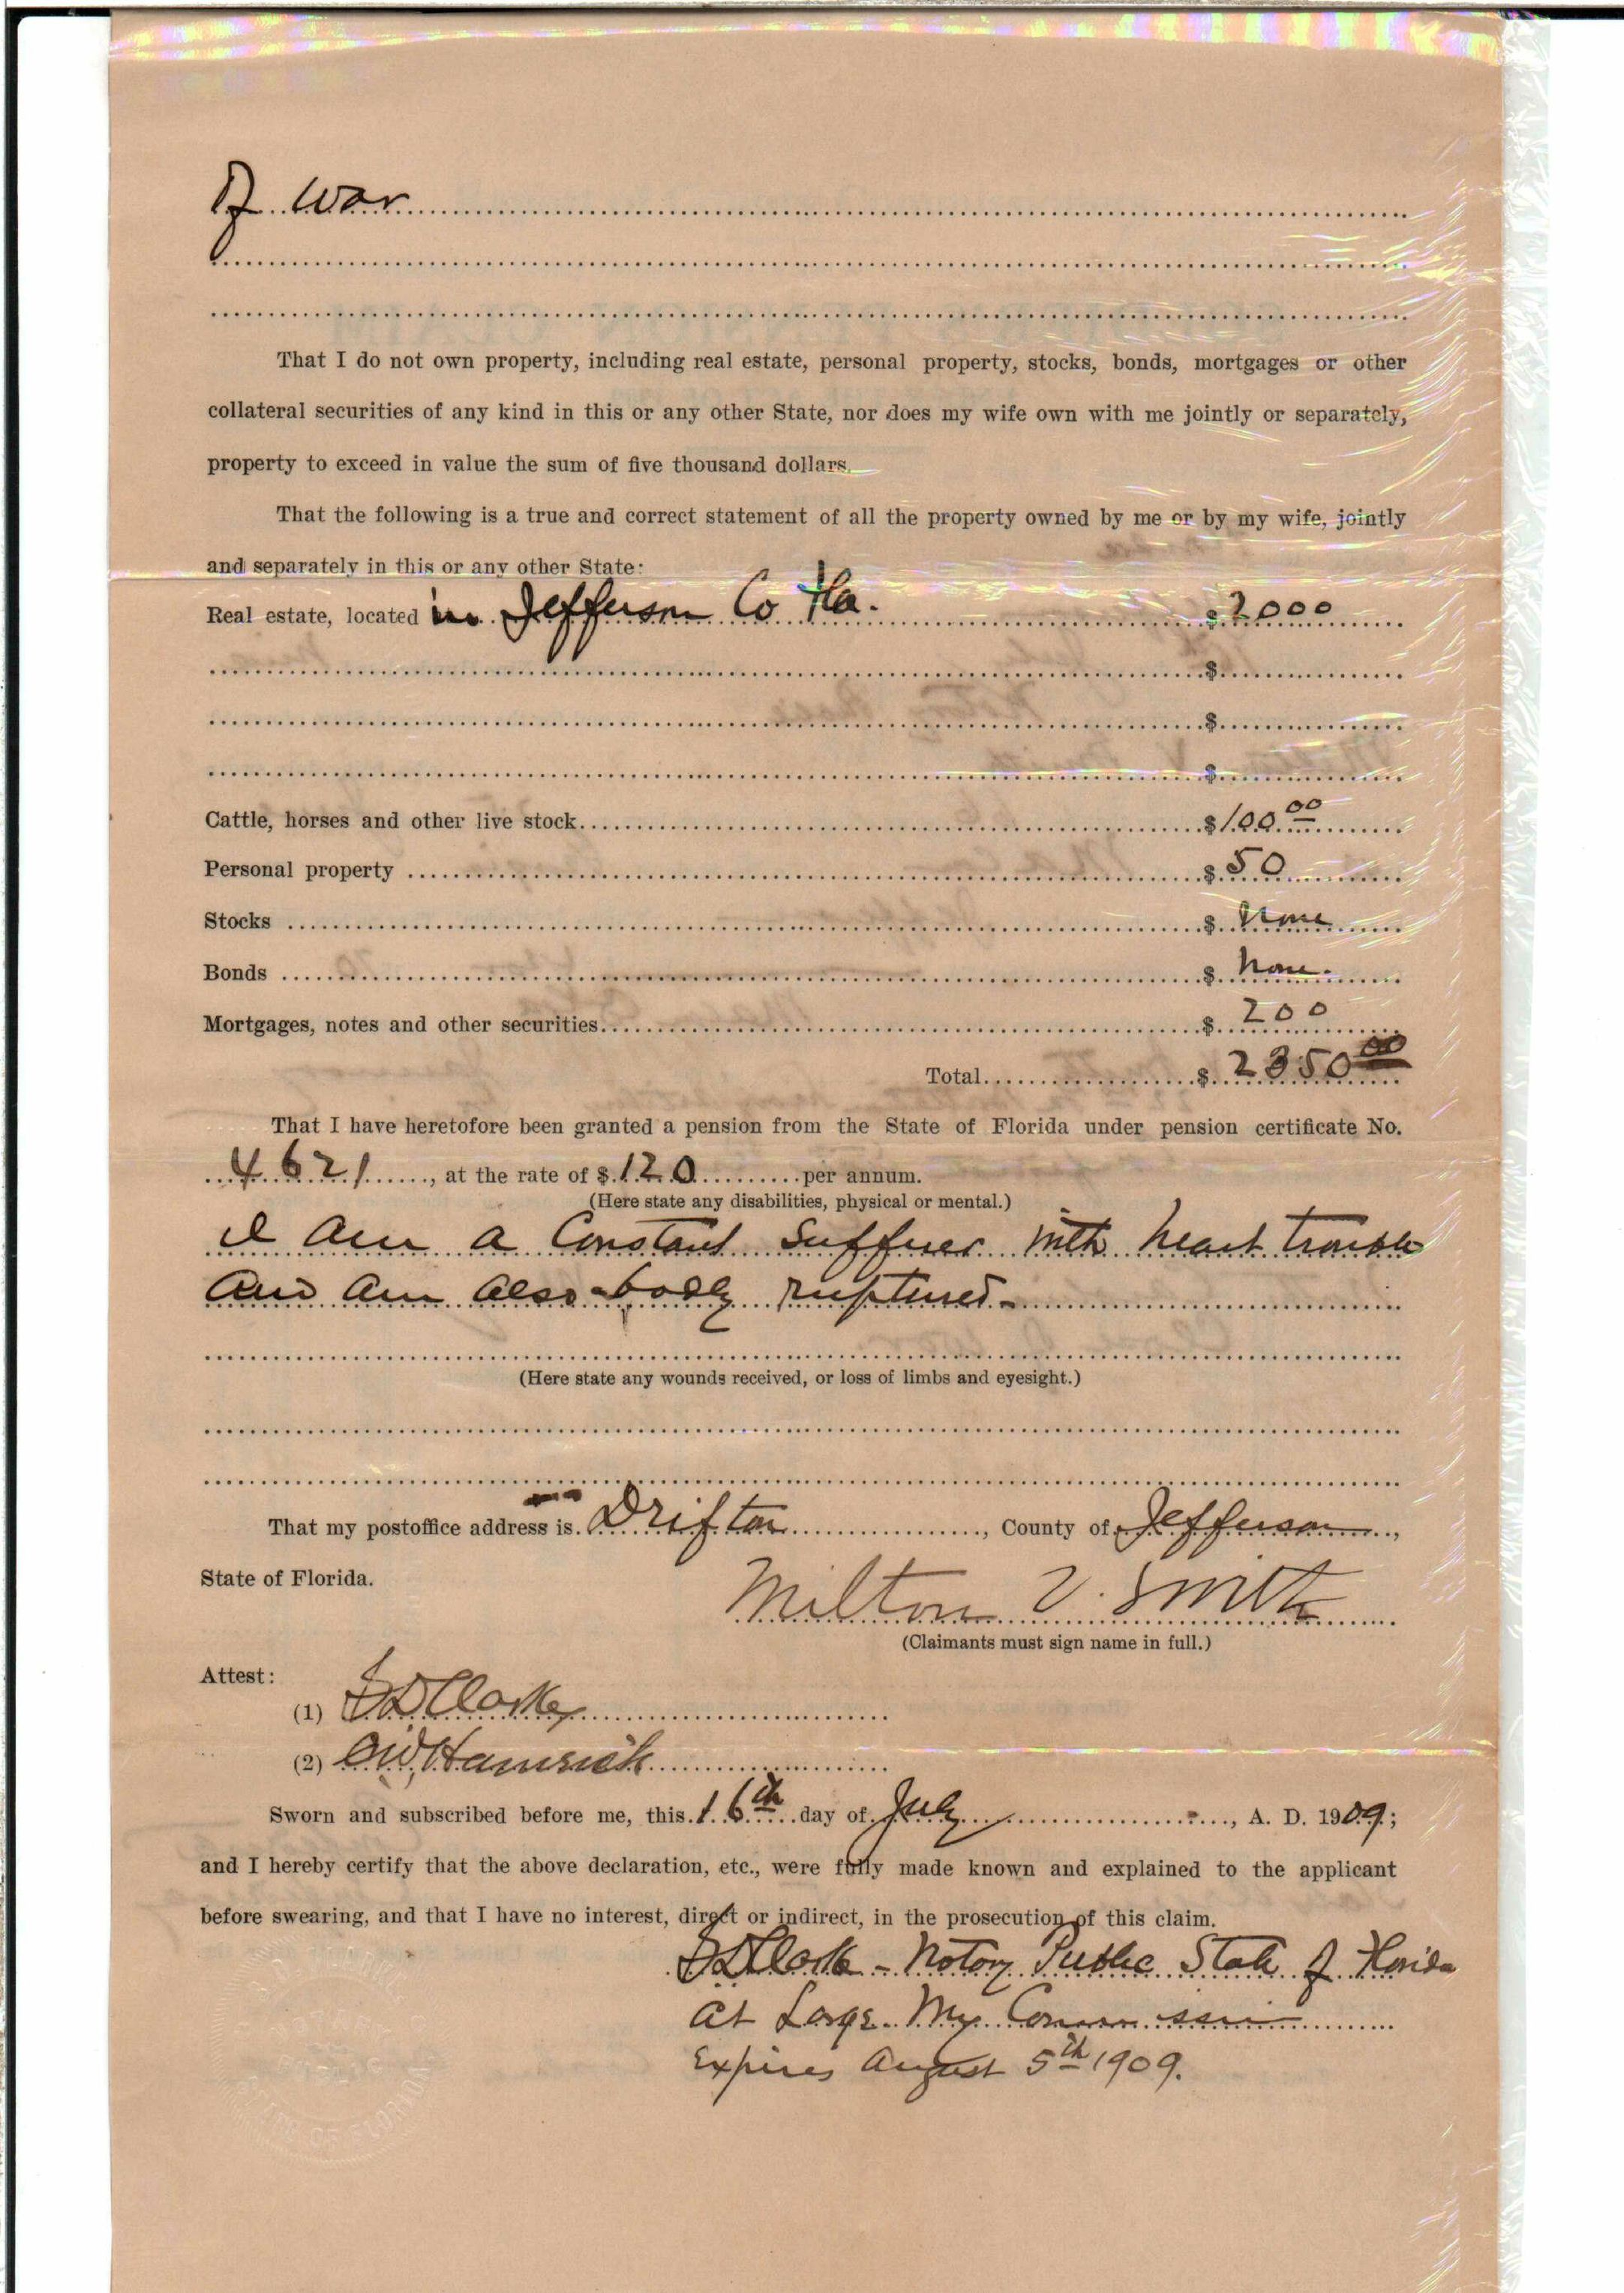 of war
That I do not own property, including real estate, personal property, stocks, bonds, mortgages or other
collateral securities of any kind in this or any other State, nor does my wife own with me jointly or separately,
property to exceed in value the sum of five thousand dollars.
That the following is a true and correct statement of all the property owned by me or by my wife, jointly
and separately in this or any other State:
Real estate, located in Jefferson Co Fla. $2000
$
$
$
Cattle, horses and other live stock $100.00
Personal property $50
Stocks $ None
Bonds $ None.
Mortgages, notes and other securities $ 200
Total $ 2350 00
That I have heretofore been granted a pension from the State of Florida under pension certificate No.
4621, at the rate of $120 per annum.
(Here state any disabilities, physical or mental.)
I am a Constant Suffurer with heart trouble
and am also badly ruptured-
(Here state any wounds received, or loss of limbs and eyesight.)
That my postoffice address is Drifton, County of Jefferson,
State of Florida.
Milton V. Smith
(Claimants must sign name in full.)
Attest:
(1) Clarke
(2) CW Hamrick
Sworn and subscribed before me, this 16th day of July, A. D. 1909;
and I hereby certify that the above declaration, etc., were fully made known and explained to the applicant
before swearing, and that I have no interest, direct or indirect, in the prosecution of this claim.
Clarke - Notary Public State of Florida
at Large. My Commission
Expires August 5th 1909.
STATE OF FLORIDA